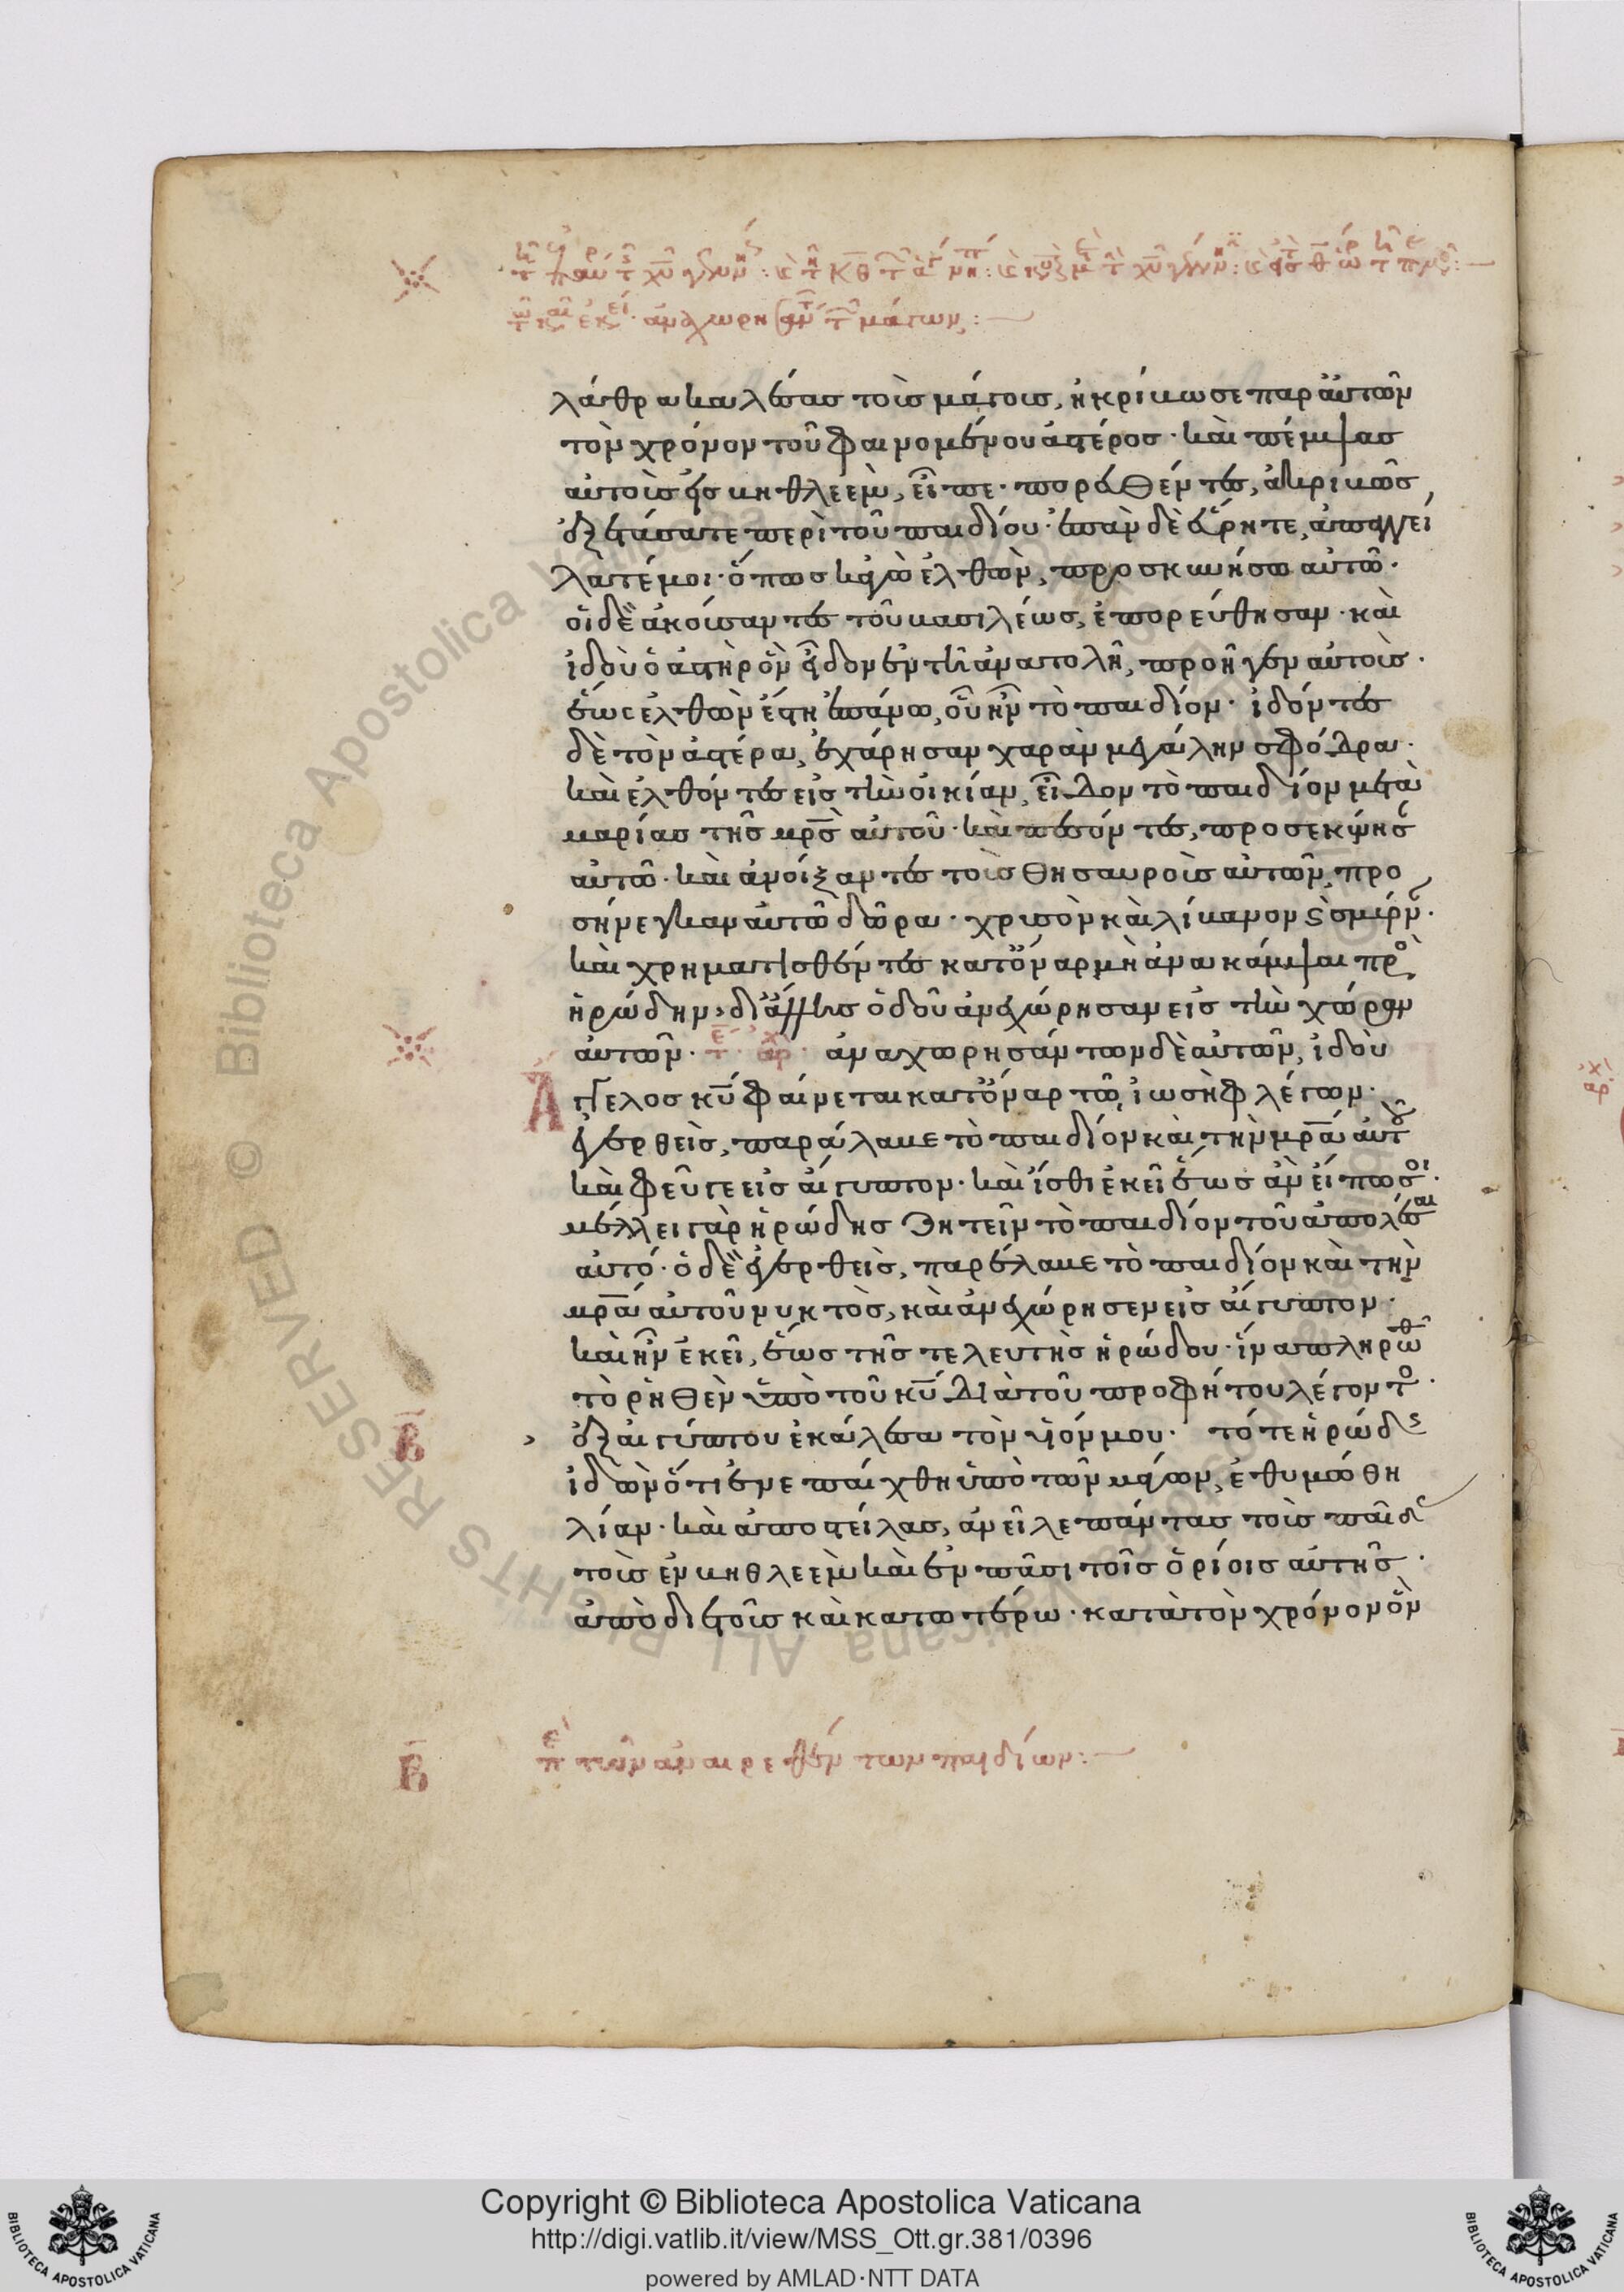 λάθρα καλέσας τοὺς μάγους, ἠκρίβωσε παρ' αὐτῶν
τὸν χρόνον τοῦ φαινομένου ἀστέρος· καὶ πέμψας
αὐτοὺς εἰς βηθλεὲμ, εἶπε· πορευθέντες, ἀκριβῶς
ἐξετάσατε περὶ τοῦ παιδίου· ἐπὰν δὲ εὕρητε, ἀπαγγεί
λατέ μοι· ὅπως κἀγὼ ἐλθὼν, προσκυνήσω αὐτῶ·
οἱ δὲ ἀκούσαντες τοῦ βασιλέως, ἐπορεύθησαν· καὶ
ἰδοὺ ὁ ἀστὴρ ὃν εἶδον ἐν τῆ ἀνατολῆ, προῆγεν αὐτοὺς·
ἕως ἐλθὼν ἔστη ἐπάνω, οὗ ἦν τὸ παιδίον· ἰδόντες
δὲ τὸν ἀστέρα, ἐχάρησαν χαρὰν μεγάλην σφόδρα·
καὶ ἐλθόντες εἰς τὴν οἰκίαν, εἶδον τὸ παιδίον μετὰ
μαρίας τῆς μρ̅ς αὐτοῦ· καὶ πεσόντες, προσεκύνησ
αὐτῶ· καὶ ἀνοίξαντες τοὺς θησαυροὺς αὐτῶν, προ
σήνεγκαν αὐτῶ δῶρα· χρυσὸν καὶ λίβανον ϗ σμύρν·
καὶ χρηματισθέντες κατ' ὄναρ μὴ ἀνακάμψαι πρὸ
ἡρώδην, δι' ἄλλης ὁδοῦ ἀνεχώρησαν εἰς τὴν χώραν
αὐτῶν· τε αρχ ἀναχωρησάντων δὲ αὐτῶν, ἰδοὺ
Ἄγγελος κυ̅ φαίνεται κατ' ὄναρ τῶ ἰωσὴφ λέγων·
ἐγερθεὶς, παράλαβε τὸ παιδίον καὶ τὴν μρ̅α αὐτοῦ
καὶ φεῦγε εἰς αἴγυπτον· καὶ ἴσθι ἐκεῖ ἕως ἂν εἴπω σοι·
μέλλει γὰρ ἡρώδης ζητεῖν τὸ παιδίον τοῦ ἀπολέσαι
αὐτό· ὁ δὲ ἐγερθεὶς, παρέλαβε τὸ παιδίον καὶ τὴν
μρ̅α αὐτοῦ νυκτὸς, καὶ ἀνεχώρησεν εἰς αἴγυπτον·
καὶ ἦν ἐκεῖ, ἕως τῆς τελευτῆς ἡρώδου· ἵνα πληρωθῆ
τὸ ῥηθὲν ὑπὸ τοῦ κυ̅ διὰ τοῦ προφήτου λέγοντο·
Β̅ ἐξ αἰγύπτου ἐκάλεσα τὸν υἱόν μου· τότε ἡρώδς
ἰδὼν ὅτι ἐνεπαίχθη ὑπὸ τῶν μάγων, ἐθυμώθη
λίαν· καὶ ἀποστείλας, ἀνεῖλε πάντας τοὺς παῖδ
τοὺς ἐν βηθλεὲμ καὶ ἐν πᾶσι τοῖς ὁρίοις αὐτῆς·
ἀπὸ διετοῦς καὶ κατωτέρω· κατὰ τὸν χρόνον ὃν
Β̅ πε τῶν ἀναιρεθέντων παιδίων:
Copyright © Biblioteca Apostolica Vaticana
http://digi.vatlib.it/view/MSS_Ott.gr.381/0396
powered by AMLAD·NTT DATA